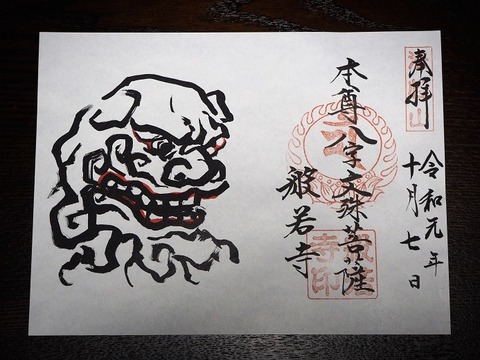 奉拝
令和元年
十月七日
本尊八字文殊菩薩
般若寺